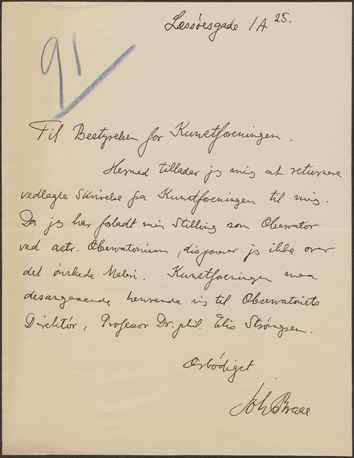 Lessøesgade 1A 25.
91
Til Bestyrelsen for Kunstforeningen.
Hermed tillader jeg mig at returnere
vedlagte Skrivelse fra Kunstforeningen til mig.
Da jeg har forladt min Stilling som Observator
ved astr. Observatorium, disponerer jeg ikke over
det ønskede Maleri. Kunstforeningen maa
desangaaende henvende sig til Observatoriets
Direktör, Professor Dr. phil. Elis Strömgren.
Ærbödigst
Joh. Braae